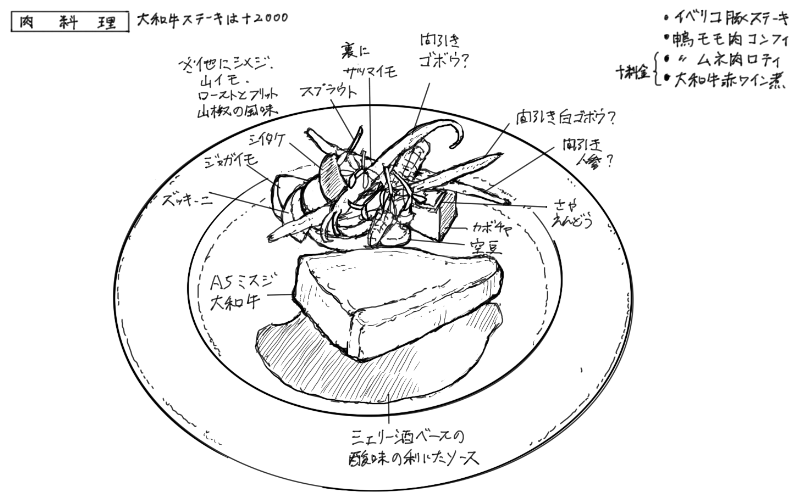 肉料理
大和牛ステーキは+2000
・イベリコ豚ステーキ
・鴨モモ肉コンフィ
・〃ムネ肉ロティ
・大和牛赤ワイン煮
+料金
その他にシメジ、
山イモ、
ローストとフリット
山椒の風味
スプラウト
裏に
サツマイモ
間引き
ゴボウ?
間引き白ゴボウ?
間引き
人参?
シイタケ
ジャガイモ
ズッキーニ
さや
えんどう
カボチャ
空豆
A5ミスジ
大和牛
シェリー酒ベースの
酸味の利いたソース